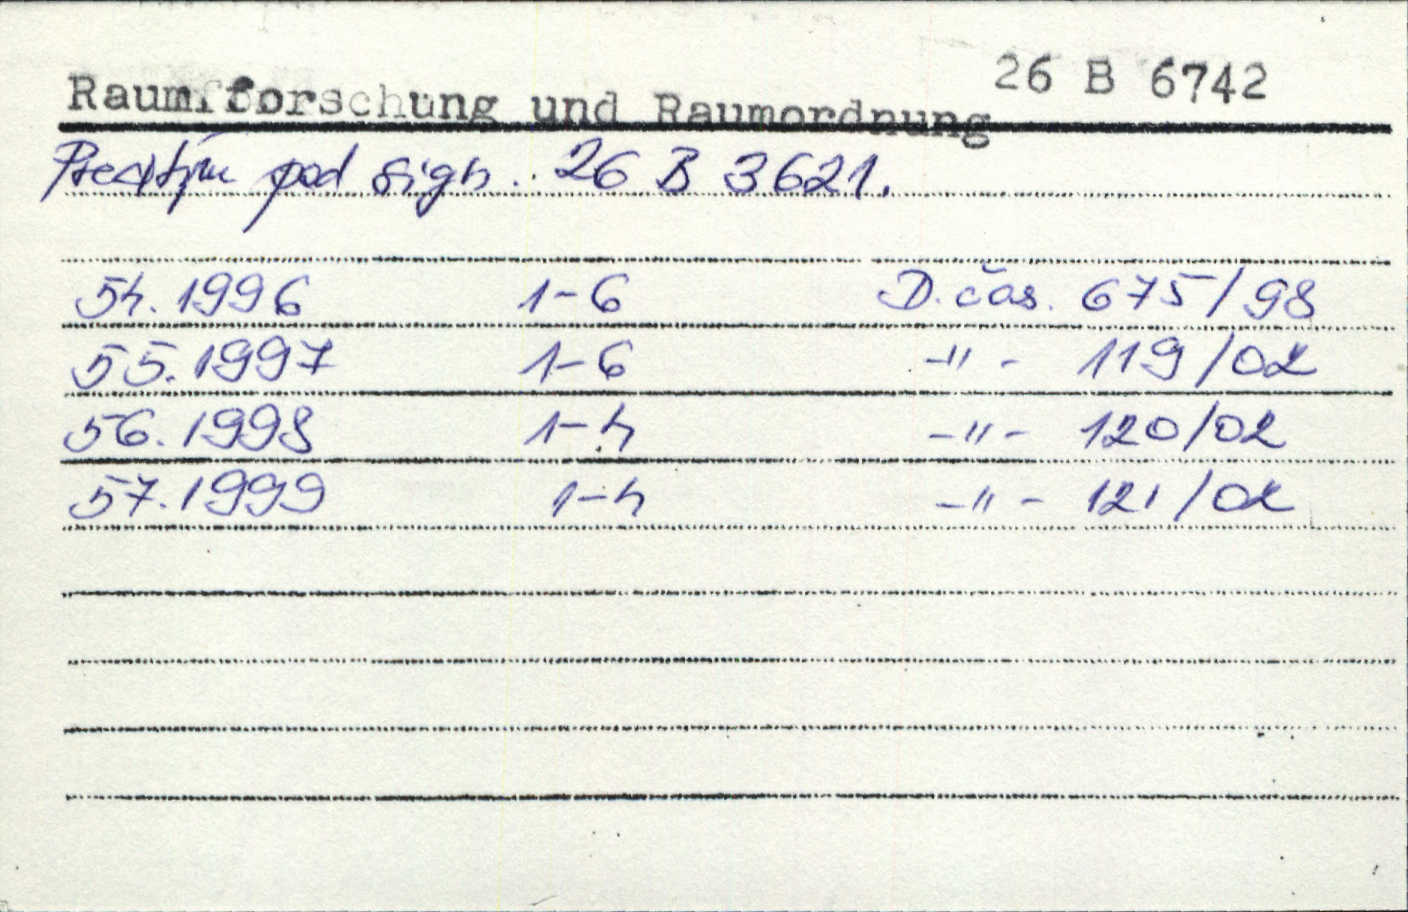 26 B 6742
Raumforschung und Raumordnung
Předtím pod sign. 26 B 3621.
54. 1996 1-6 D. čas. 675/98
55. 1997 1-6 -"- 119/02
56. 1998 1-4 -"- 120/02
57. 1999 1-4 -"- 121/02